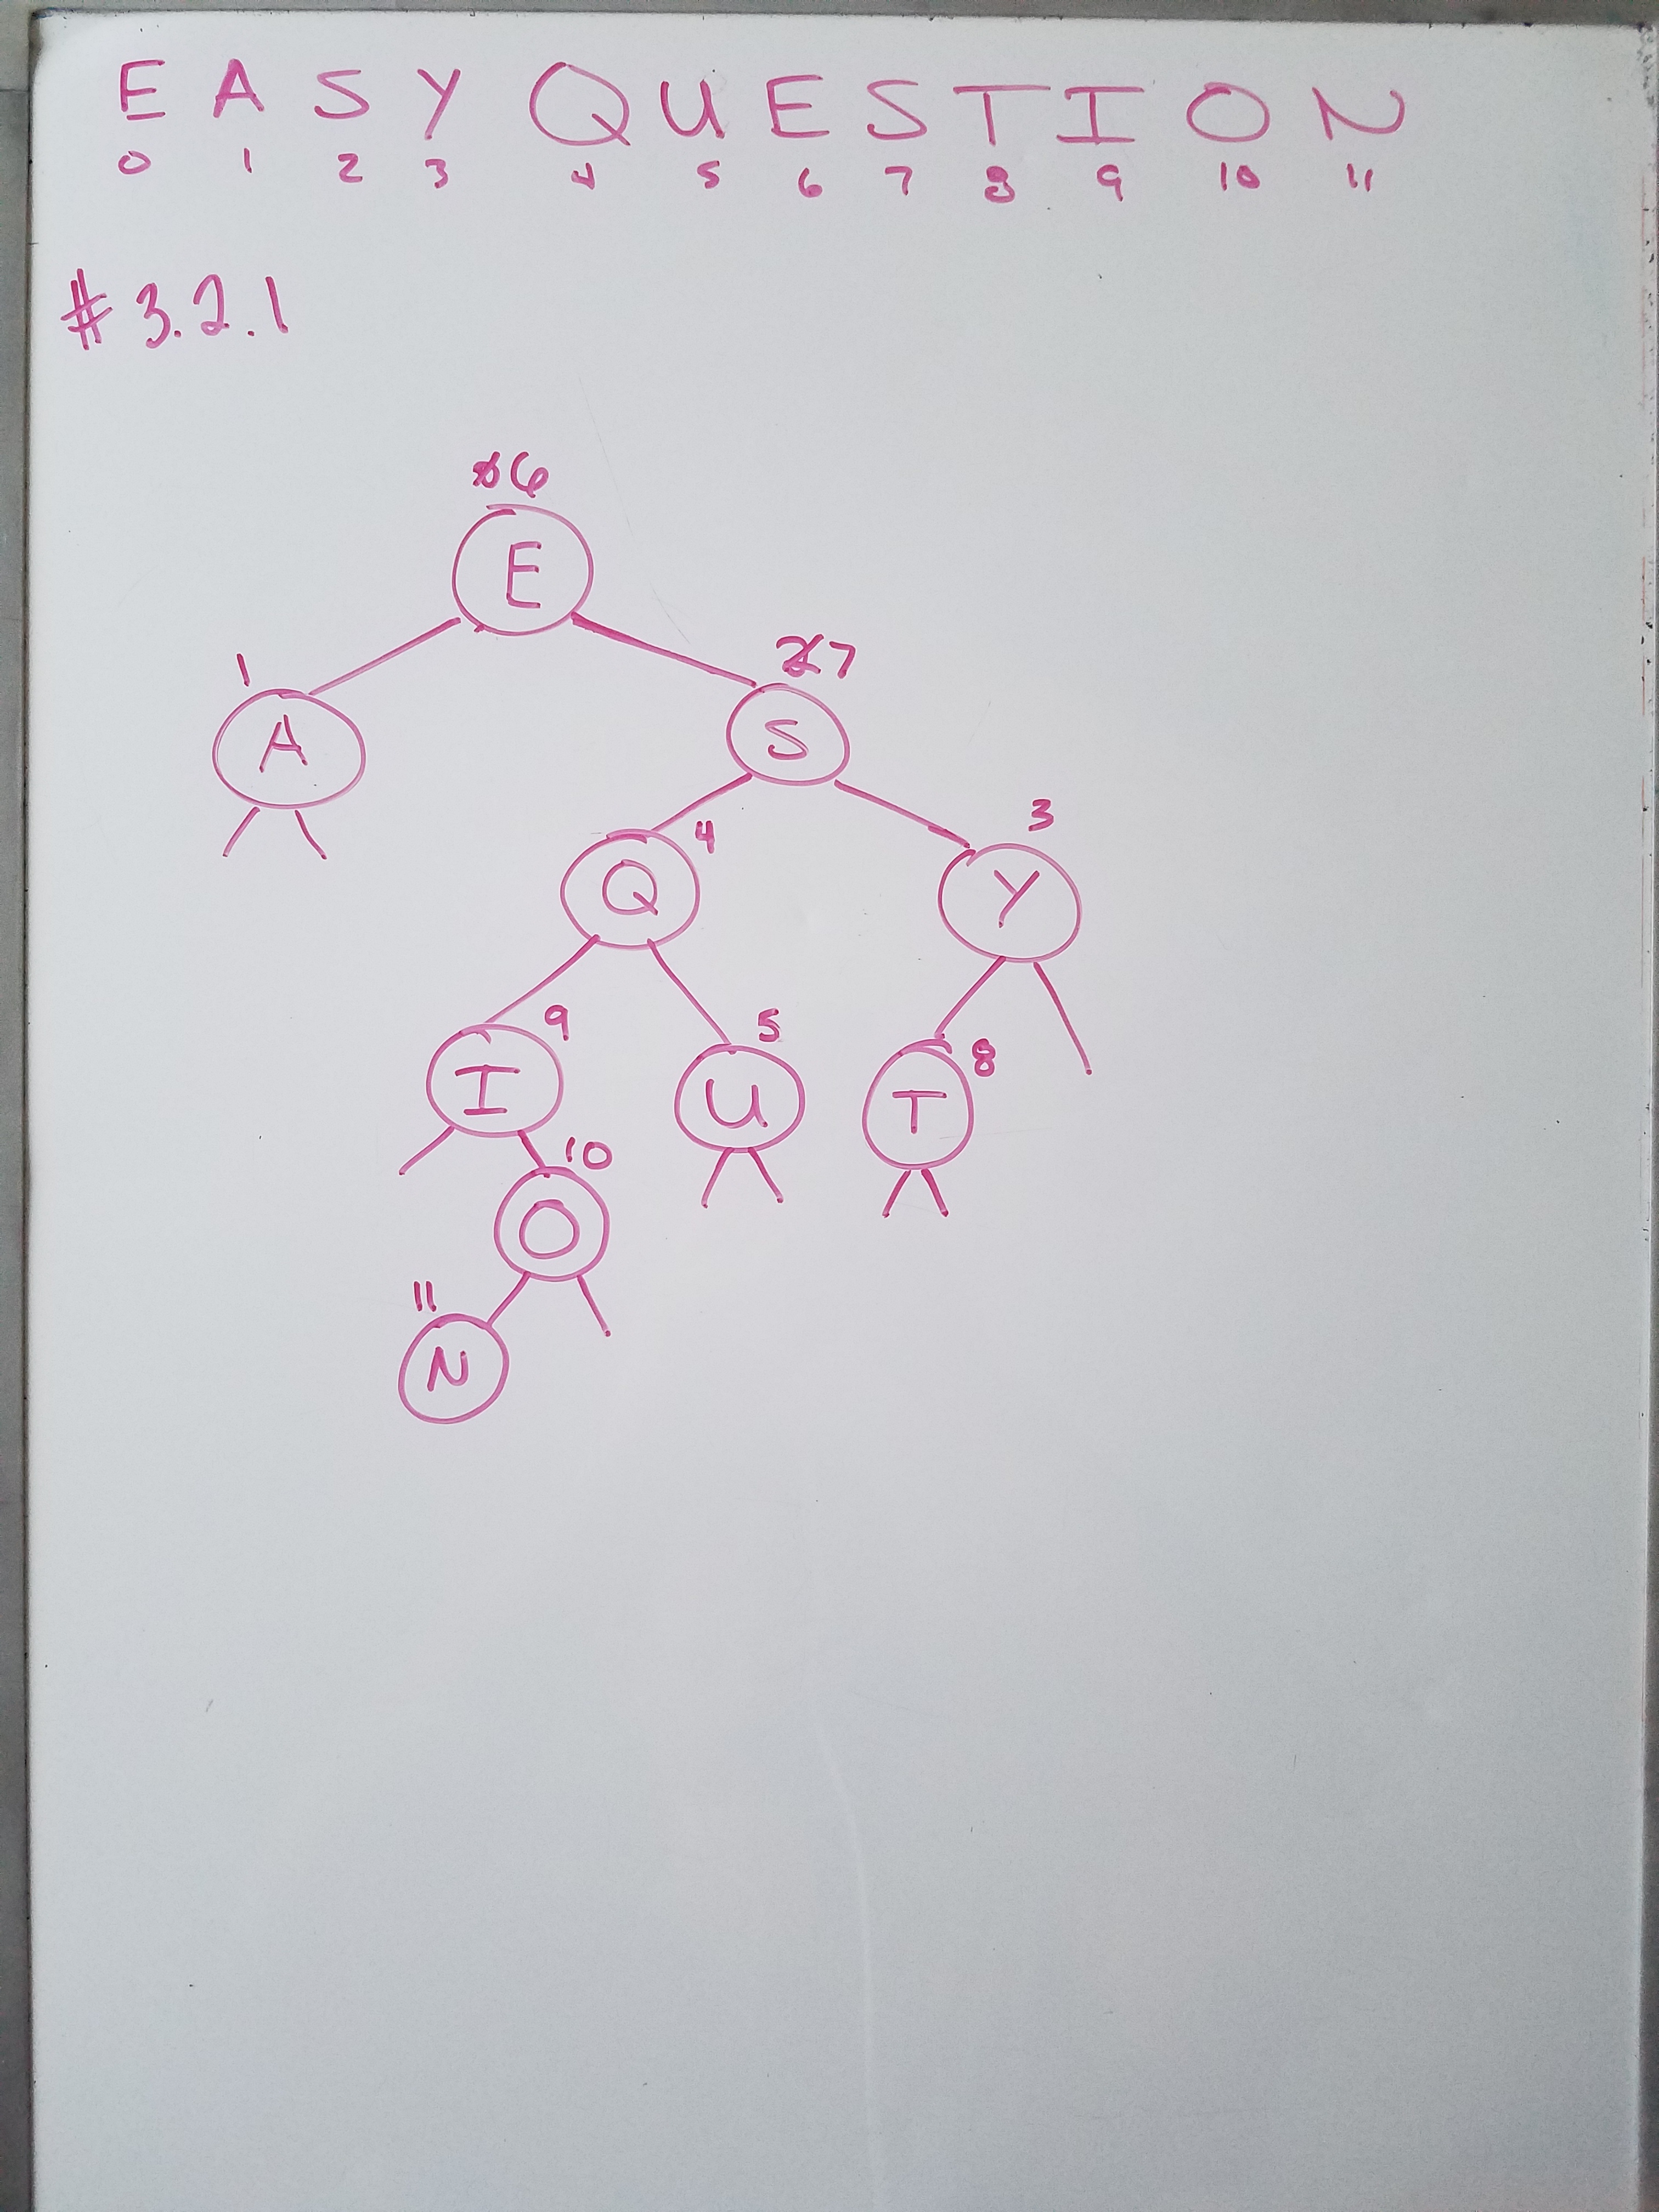 E A S Y Q U E S T I O N
0 1 2 3 4 5 6 7 8 9 10 11
# 3.2.1
6
E
1
2 7
A
S
4
3
Q
Y
9
5
8
I
U
T
10
O
11
N